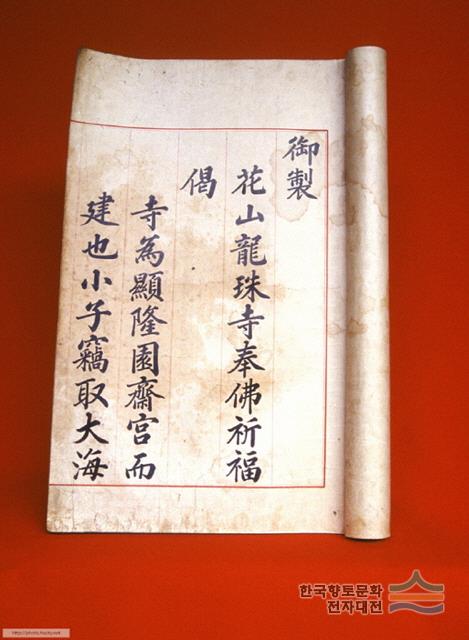 御製
花山龍珠寺奉佛祈福
偈
寺為顯隆園齋宮而
建也小子竊取大海
한국향토문화
전자대전